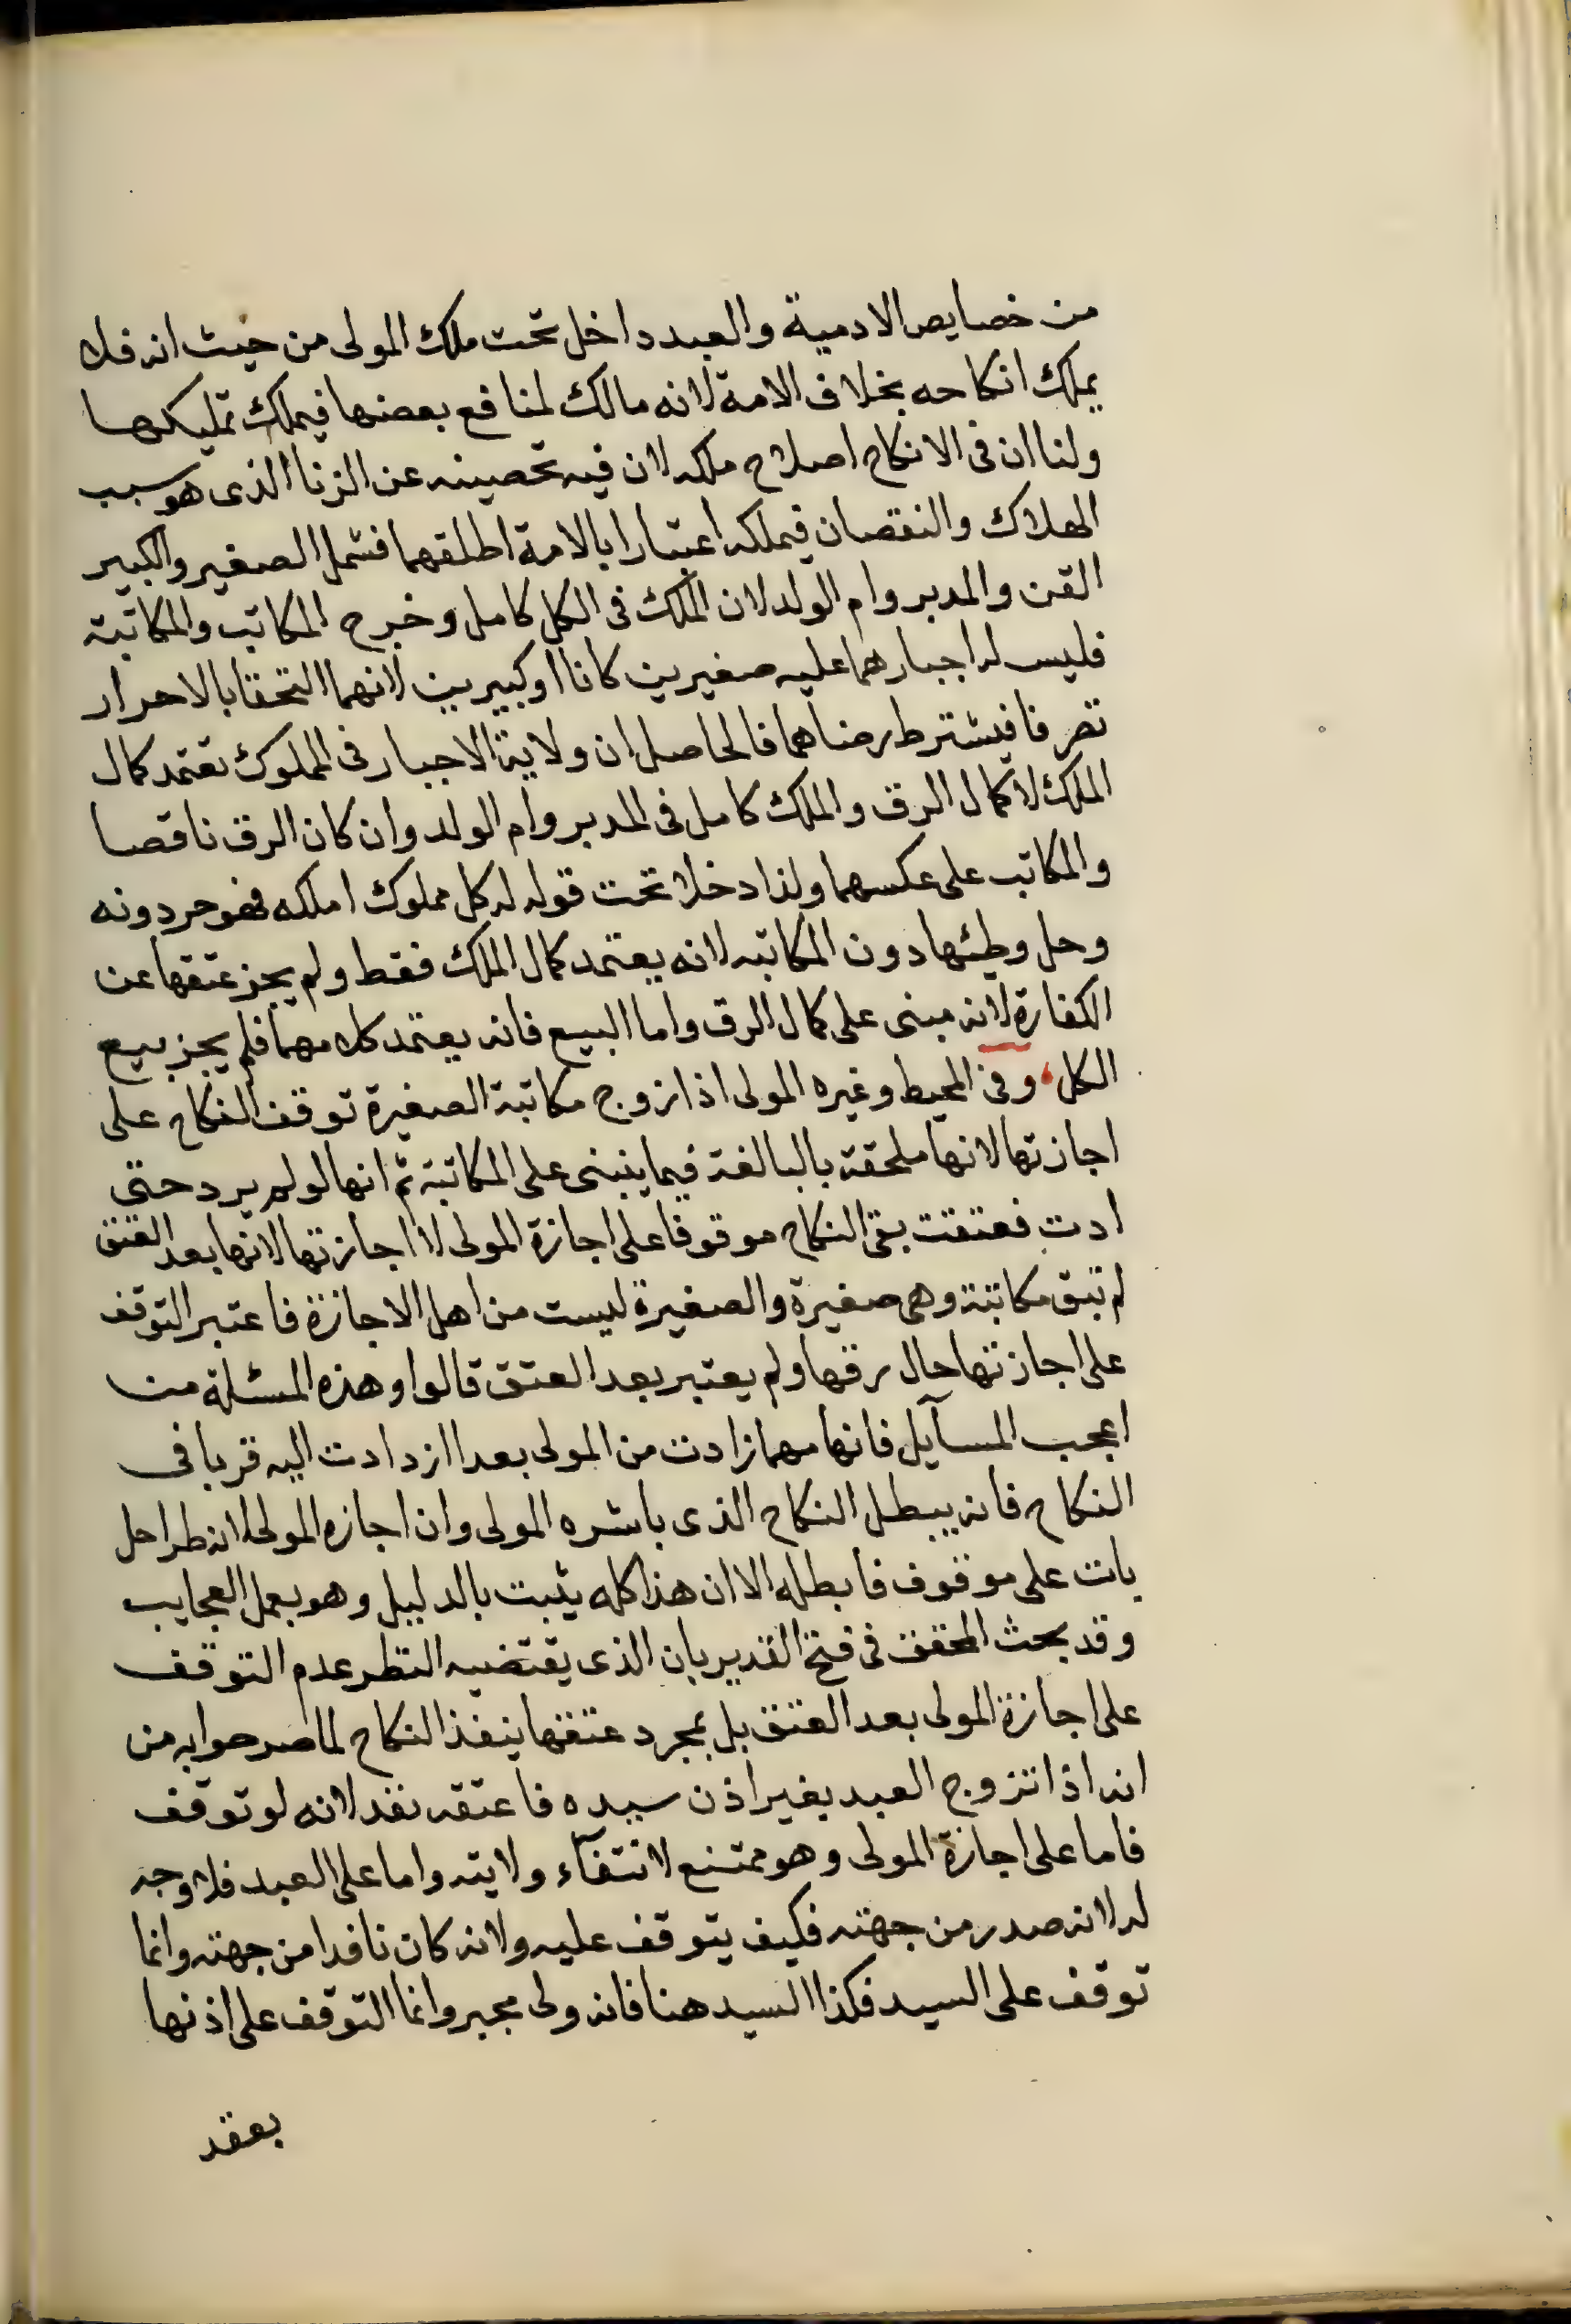 من خصايص الادمية والعبد داخل تحت ملك المولى من حيث انه فلا
يملك انكاحه بخلاف الامة لانه مالك لمنافع بعضها فيملك تمليكها
ولنا ان فى الانكاح اصلاح ملكه لان فيه تحصينه عن الزنا الذى هو سبب
الهلاك والنقصان فيملكه اعتبارا بالامة اطلقهما فشمل الصغير والكبير
القن والمدبر وام الولد لان الملك فى الكل كامل وخرج المكاتب والمكاتبة
فليس له اجبارهما عليه صغيرين كانا او كبيرين لانهما التحقا بالاحرار
تصرفا فيشترط رضاهما فالحاصل ان ولاية الاجبار فى المملوك تعتمد كمال
الملك لا كمال الرق والملك كامل فى المدبر وام الولد وان كان الرق ناقصا
والمكاتب على عكسهما ولذا دخلا تحت قوله له كل مملوك املكه فهو حر دونه
وحل وطئها دون المكاتبه لانه يعتمد كمال الملك فقط ولم يجز عتقها عن
الكفارة لانه مبنى على كمال الرق واما البيع فانه يعتمد كلا مهما فلم يجز بيع
الكل، وفى المحيط وغيره المولى اذا زوج مكاتبة الصغيرة توقف النكاح على
اجازتها لانها ملحقة بالبالغة فيما ينبنى على المكاتبة ثم انها لو لم يرد حتى
ادت فعتقت بقى النكاح موقوفا على اجازة المولى لا اجازتها لانها بعد العتق
لم تبق مكاتبة وهى صغيرة والصغيرة ليست من اهل الاجازة فاعتبر التوقف
على اجازتها حال رقها ولم يعتبر بعد العتق قالوا وهذه المسئلة من
اعجب المسآيل فانها مهما زادت من المولى بعدا ازدادت اليه قربا فى
النكاح فانه يبطل النكاح الذى باشره المولى وان اجازه المولى لانه طرا حل
بات على موقوف فابطله الا ان هذا كله يثبت بالدليل وهو يعمل العجايب
وقد بحث المحقق فى فتح القدير بان الذى يقتضيه النظر عدم التوقف
على اجازة المولى بعد العتق بل بمجرد عتقها ينفذ النكاح لما صرحوا به من
انه اذا تزوج العبد بغير اذن سيده فاعتقه نفذ لانه لو توقف
فاما على اجازة المولى وهو ممتنع لانتفآء ولايته واما على العبد فلا وجه
له لانه صدر من جهته فكيف يتوقف عليه ولانه كان نافدا من جهته وانما
توقف على السيد فكذا السيد هنا فانه ولى مجبر وانما التوقف على اذنها
بعقد